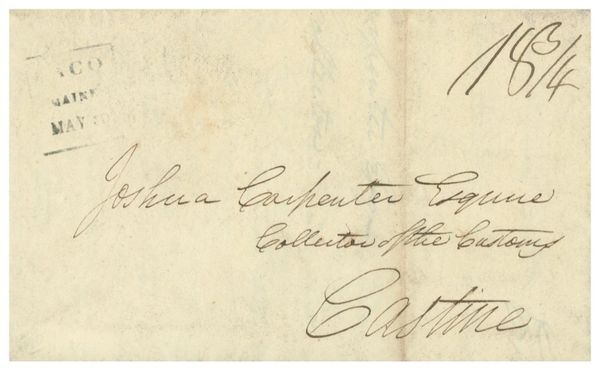 ACO
MAINE
MAY
18¾
Joshua Carpenter Esquire
Collector of the Customs
Castine